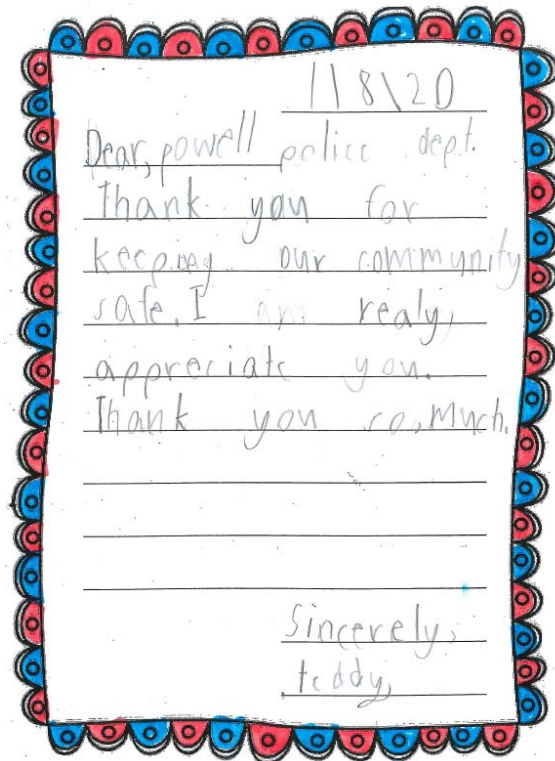 1\8\20
Dear, powell police dept.
Thank you for
keeping our community
safe. I am realy,
appreciate you.
Thank you so, much.
Sincerely,
teddy,